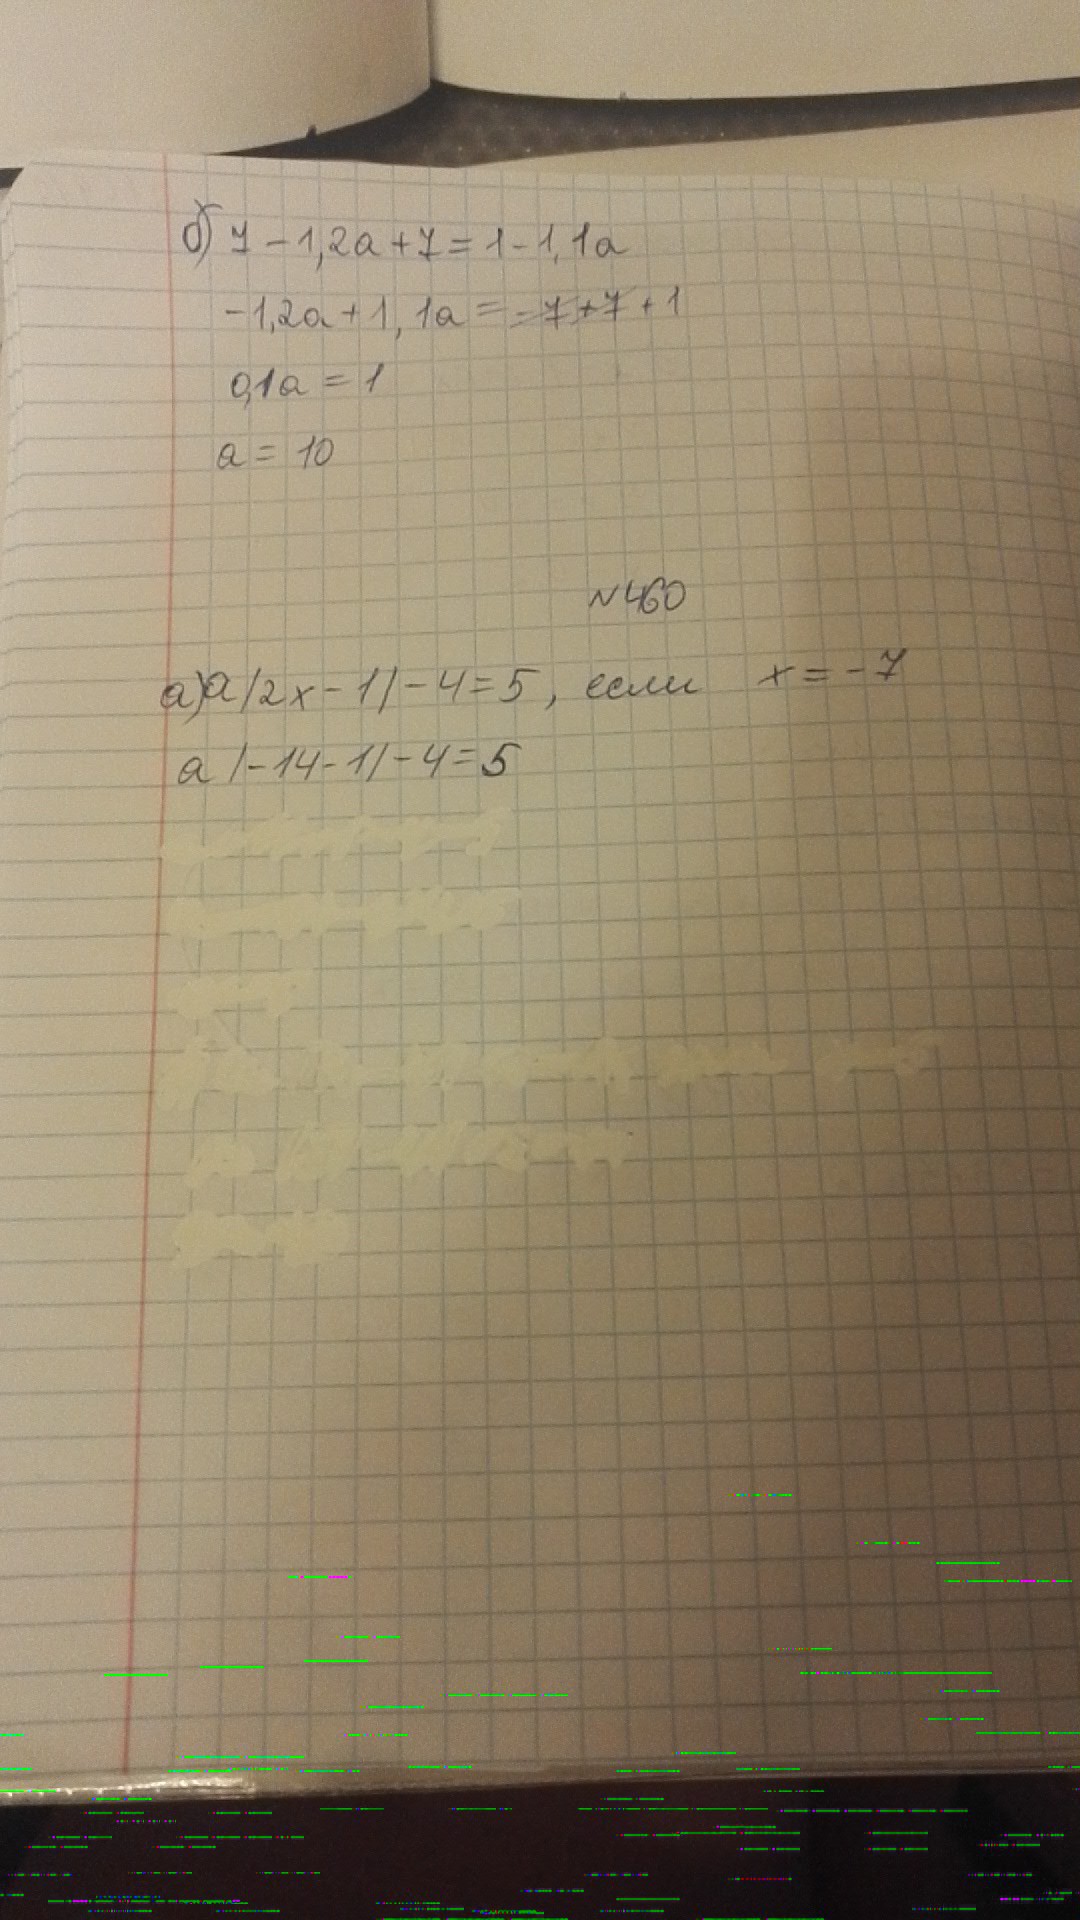 б) 7 - 1,2a + 7 = 1 - 1,1a
-1,2a + 1,1a = -7 + 7 + 1
0,1a = 1
a = 10
N460
а) a|2x - 1| - 4 = 5, если x = -7
a |-14 - 1| - 4 = 5